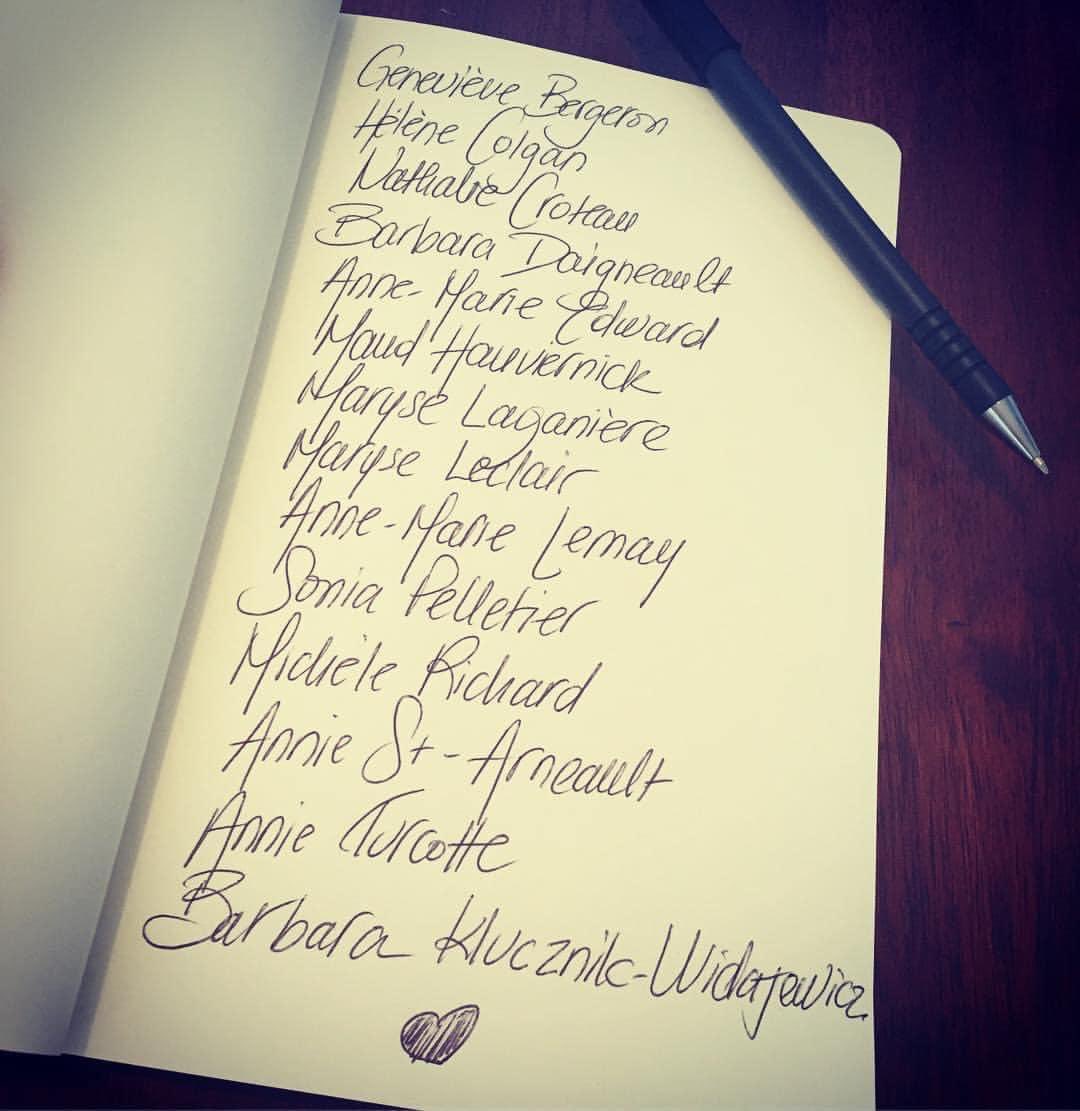 Geneviève Bergeron
Hélène Colgan
Nathalie Croteau
Barbara Daigneault
Anne-Marie Edward
Maud Hauviernick
Maryse Laganière
Maryse Leclair
Anne-Marie Lemay
Sonia Pelletier
Michèle Richard
Annie St-Arneault
Annie Turcotte
Barbara Klucznik-Widajewicz